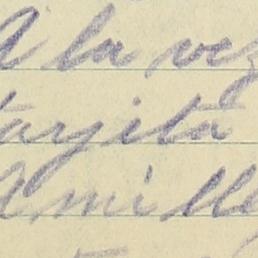 A la vez
tarjita
A mi lle